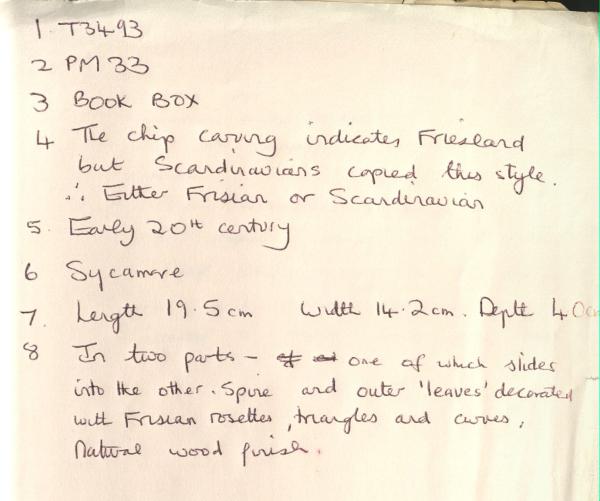 1. T3493
2 PM 33
3 BOOK BOX
4 The chip carving indicates Friesland
but Scandinavians copied this style.
∴ Either Frisian or Scandinavian
5. Early 20th century
6 Sycamore
7. Length 19.5 cm Width 14.2 cm. Depth 4.0cm
8 In two parts - one of which slides
into the other. Spine and outer 'leaves' decorated
with Frisian rosettes, triangles and curves,
Natural wood finish.